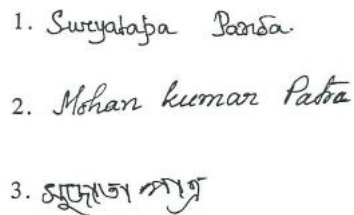 1. Suryatapa Panda.
2. Mohan kumar Patra
3. সুজাতা পাত্র